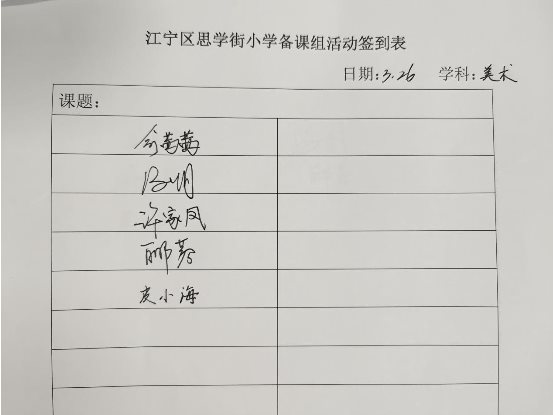 江宁区思学街小学备课组活动签到表
日期:3.26 学科:美术
课题:
许家凤
郦琴
皮小海